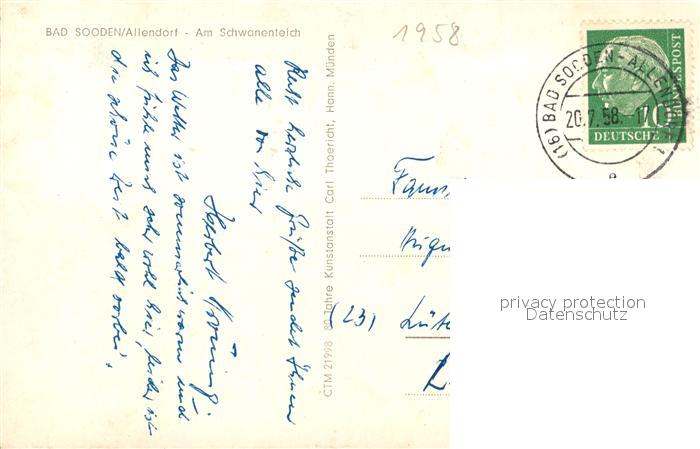 BAD SOODEN/Allendorf - Am Schwanenteich
1958
Das Wetter ist sommerlich warm und
ich fühle mich sehr wohl hier, leider ist
die schöne Zeit bald vorbei.
Recht herzliche Grüße sendet Ihnen
alle von hier
Herbert
CTM 21998 80 Jahre Kunstanstalt Carl Thoericht, Hann. Münden
(16) BAD SOODEN-ALLENDORF 1
20.7.58.-17
e
10
DEUTSCHE
BUNDESPOST
Fam
(23) Lüt
privacy protection
Datenschutz